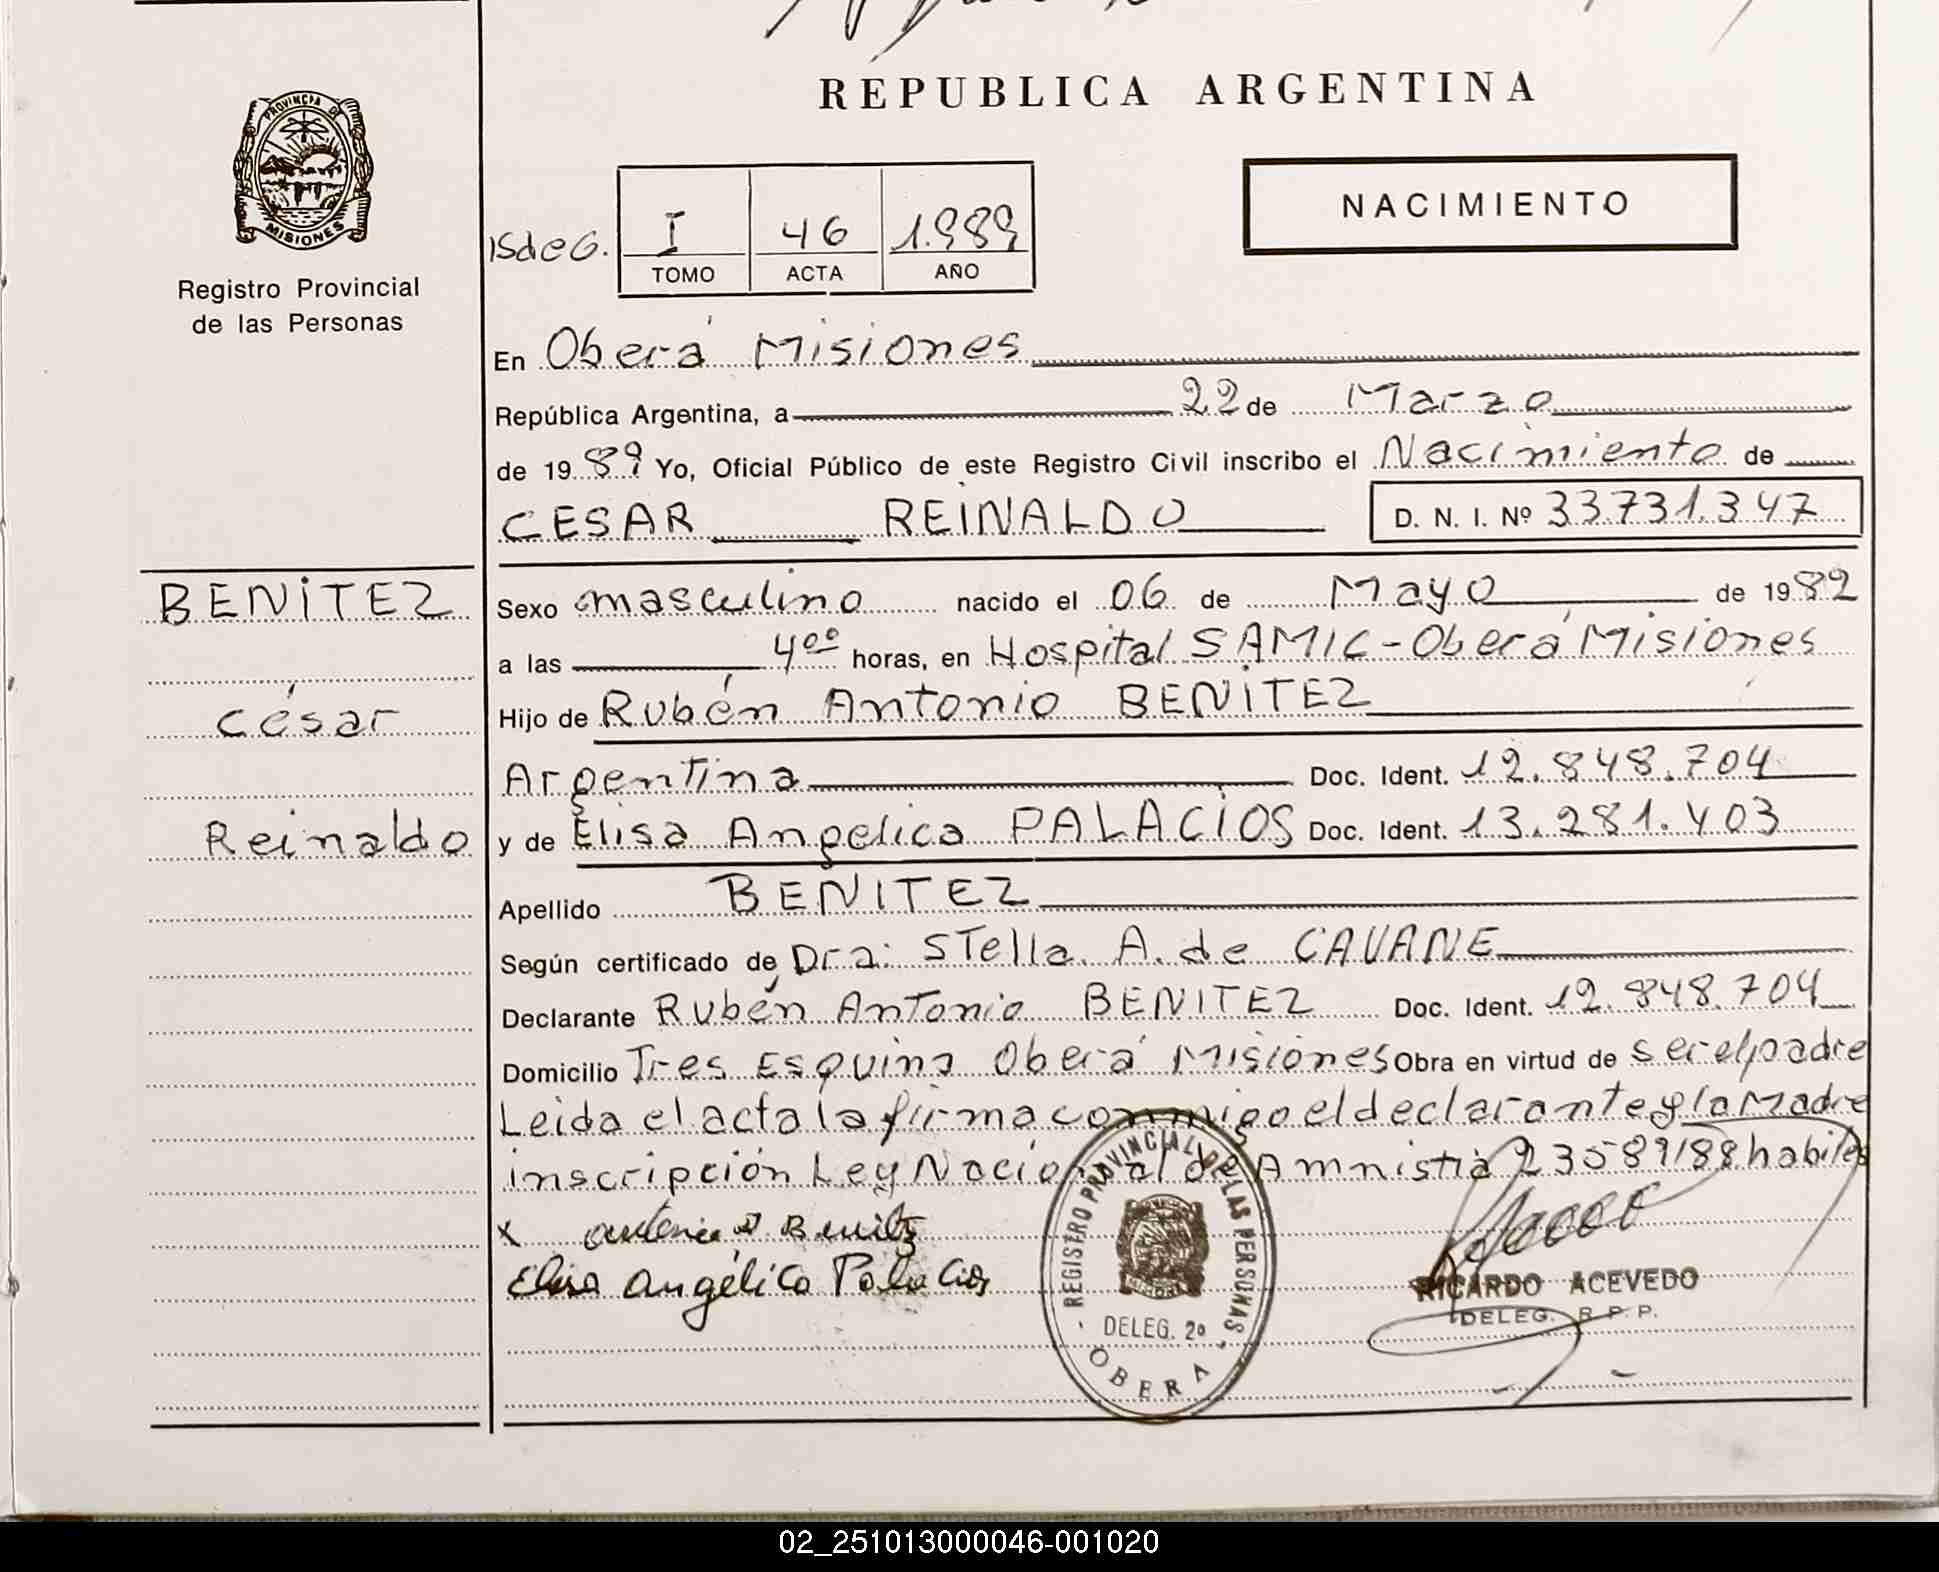 REPUBLICA ARGENTINA
PROVINCIA DE
MISIONES
Registro Provincial
de las Personas
NACIMIENTO
ISdeG. I 46 1.989
TOMO ACTA AÑO
En Oberá Misiones
República Argentina, a 22 de Marzo
de 19 89 Yo, Oficial Público de este Registro Civil inscribo el Nacimiento de
CESAR REINALDO D. N. I. Nº 33.731.347
BENITEZ
César
Reinaldo
Sexo masculino nacido el 06 de Mayo de 19 82
a las 4ºº horas, en Hospital SAMIC - Oberá Misiones
Hijo de Rubén Antonio BENITEZ
Argentina Doc. Ident. 12.848.704
y de Elisa Angelica PALACIOS Doc. Ident. 13.281.403
Apellido BENITEZ
Según certificado de Dra: Stella A. de CAVANE
Declarante Rubén Antonio BENITEZ Doc. Ident. 12.848.704
Domicilio Tres Esquina Oberá Misiones Obra en virtud de ser el padre
Leida el acta la firma conmigo el declarante y la Madre
inscripción Ley Nacional de Amnistia 23589/88 habiles
x Benitz
Elisa Angélica Palacios
REGISTRO PROVINCIAL DE LAS PERSONAS
DELEG. 2º
OBERA
RICARDO ACEVEDO
DELEG. R. P. P.
02_251013000046-001020